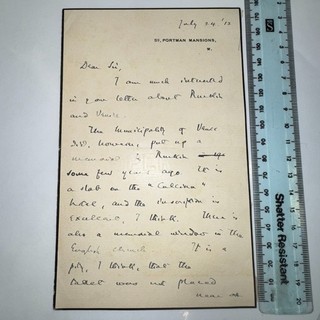 July 24 '13
20, PORTMAN MANSIONS,
W.
Dear Sir,
I am much interested
in your letter about Ruskin
and Venice.
The Municipality of Venice
did, however, put up a
memorial to Ruskin
some few years ago. It is
a slab on the "Calcina"
Hotel, and the inscription is
excellent, I think. There is
also a memorial window in the
English church. It is a
pity, I think, that the
tablet were not placed
Shatter Resistant
1 2 3 4 5 6 7 8 9 10 11 12 13 14 15 16 17 18 19 20